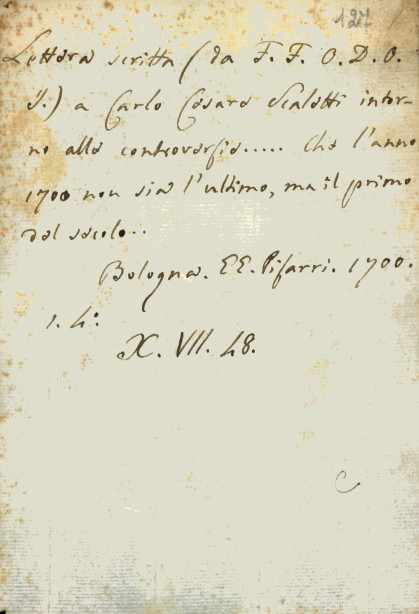 127
Lettera scritta (da F. F. O. D. O.
S.) a Carlo Cesare Scaletti intor-
no alla controversia..... Che l'anno
1700 non sia l'ultimo, ma il primo
del secolo..
Bologna. EE. Pisarri. 1700.
1. 4:
X. VII. 48.
C